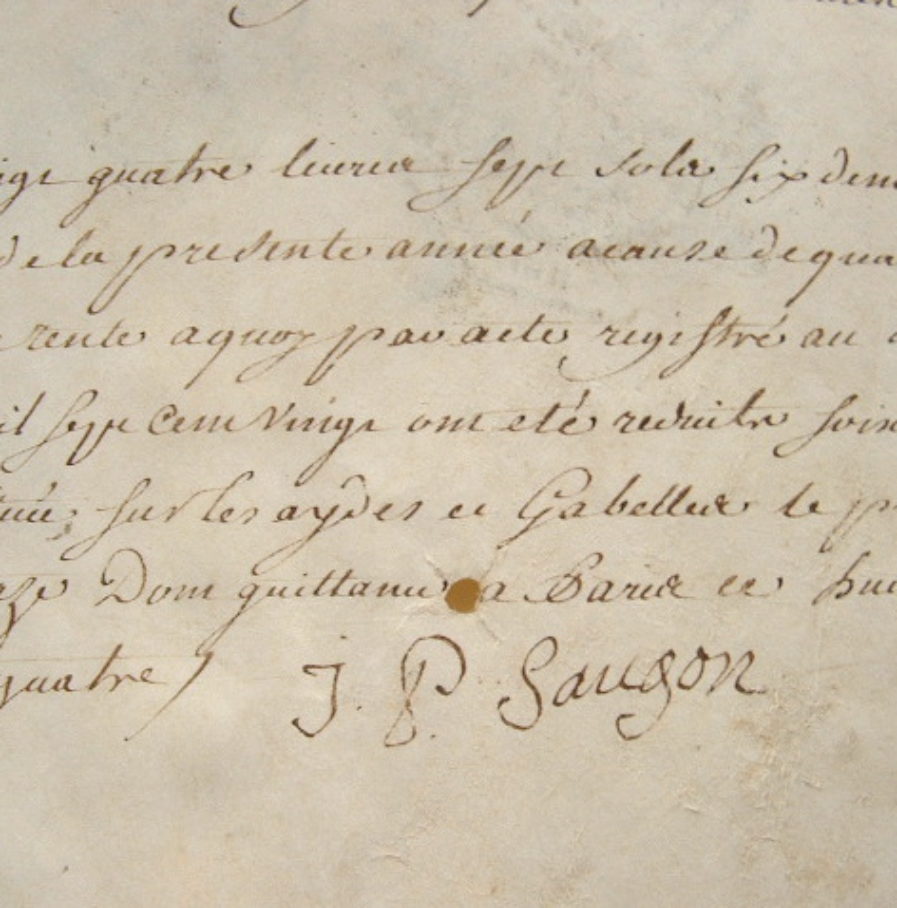 quatre livres sept sols six den
de la presente année a cause de qua
rente a quoy par acte registré au
il sept cent vingt ont eté reduitte soix
tuée sur les aydes et Gabelles le p
Dont quittance a Paris ce hui
quatre J. P. Saugon